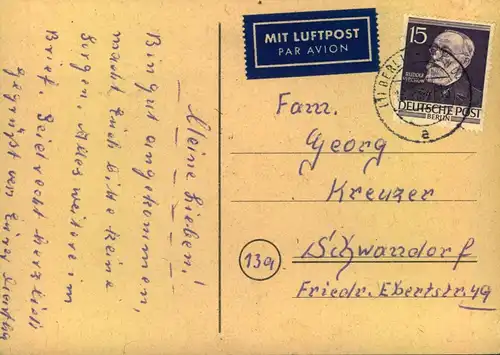 MIT LUFTPOST
PAR AVION
15
RUDOLF
VIRCHOW
DEUTSCHE POST
BERLIN
(1) BERLIN
a
Meine Lieben!
Bin gut angekommen,
macht Euch bitte keine
Sorgen. Alles weitere im
Brief. Seid recht herzlich
gegrüsst von Eurer
Fam.
Georg
Kreuzer
13a
Schwandorf
Friedr. Ebertstr. 49